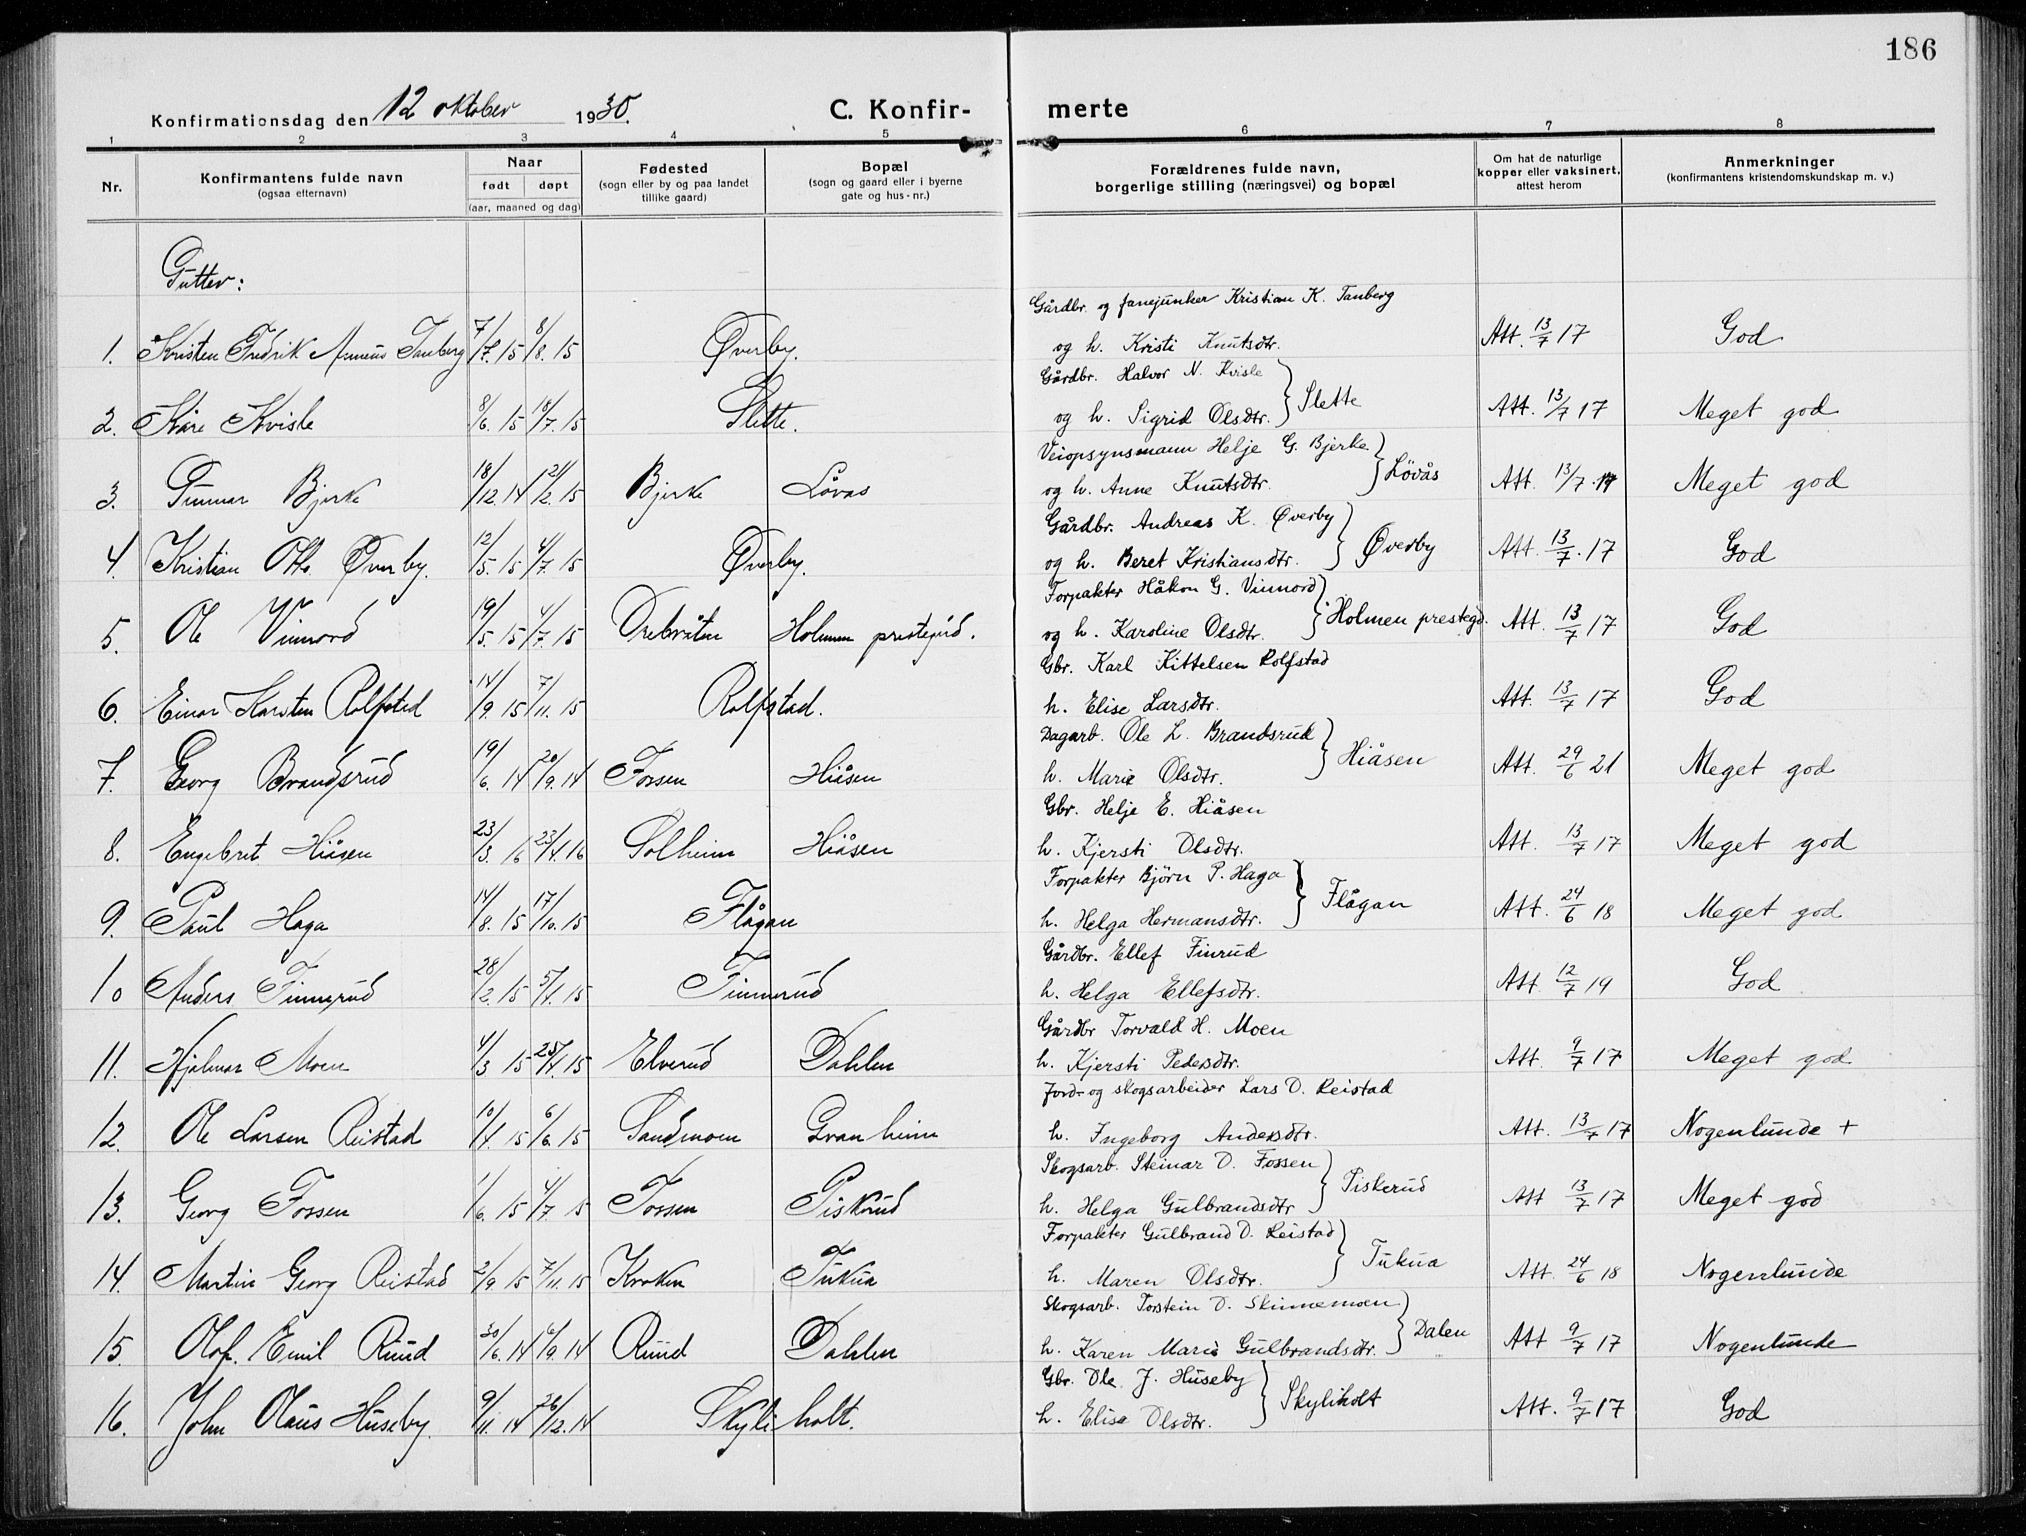 186
Konfirmationsdag den 12 oktober 1930. C. Konfir- merte
1 2 3 4 5 6 7 8
Nr. Konfirmantens fulde navn (ogsaa efternavn) Naar født døpt (aar, maaned og dag) Fødested (sogn eller by og paa landet tillike gaard) Bopæl (sogn og gaard eller i byerne gate og hus-nr.) Forældrenes fulde navn, borgerlige stilling (næringsvei) og bopæl Om hat de naturlige kopper eller vaksinert, attest herom Anmerkninger (konfirmantens kristendomskundskap m. v.)
Gutter:
Gårdbr. og fanejunker Kristian K. Tanberg
1. Kristen Fredrik Tanberg 7/7. 15 8/8. 15 Øverby. og h. Kristi Knutsdtr. Att. 13/7 17 God
Gårdbr. Halvor N. Kvisle
2. Kåre Kvisle 8/6. 15 18/7. 15 Slette. og h. Sigrid Olsdtr. } Slette Att. 13/7 17 Meget god
Veiopsynsmann Helje G. Bjerke
3. Gunnar Bjerke 18/12. 14 21/2. 15 Bjerke Lövås og h. Anne Knutsdtr. } Lövås Att. 13/7. 17 Meget god
Gårdbr. Andreas K. Øverby
4. Kristian Otto Øverby. 12/5. 15 4/7. 15 Øverby. og h. Beret Kristiansdtr. } Øverby Att. 13/7. 17 God
Forpakter Håkon G. Vinnord
5. Ole Vinnord 19/5. 15 4/7. 15 Holmen prestegård. og h. Karoline Olsdtr. } Holmen prestegd. Att. 13/7 17 God
Gbr. Karl Kittelsen Rolfstad
6. Einar Karsten Rolfstad 14/9. 15 7/11. 15 Rolfstad. h. Elise Larsdtr. Att. 13/7 17 God
Dagarb. Ole L. Brandsrud
7. Georg Brandsrud 19/6. 14 20/9. 14 Fossen Hiåsen h. Marie Olsdtr. } Hiåsen Att. 29/6 21 Meget god
Gbr. Helje E. Hiåsen
8. Engebret Hiåsen 23/3. 16 23/4. 16 Solheim Hiåsen h. Kjersti Olsdtr. Att. 13/7 17 Meget god
Forpakter Björn P. Haga
9. Paul Haga 14/8. 15 17/10. 15 Flågan h. Helga Hermansdtr. } Flågan Att. 24/6 18 Meget god
Gårdbr. Ellef Finrud
10 Anders Finnerud 28/2. 15 5/4. 15 Finnerud h. Helga Ellefsdtr. Att. 12/7 19 God
Gårdbr Torvald H. Moen
11. Hjalmar Moen 4/3 15 25/4. 15 Elverud Dahlen h. Kjersti Pedersdtr. Att. 9/7 17 Meget god
Jord- og skogsarbeider Lars O. Reistad
12. Ole Larsen Reistad 10/4. 15 6/6. 15 Sandmoen Granheim h. Ingeborg Andersdtr. Att. 13/7 17 Nogenlunde +
Skogsarb. Steinar O. Fossen
13. Georg Fossen 1/6. 15 4/7. 15 Fossen Piskerud h. Helga Gulbrandsdtr } Piskerud Att 13/7 17 Meget god
Forpakter Gulbrand O. Reistad
14. Martin Georg Reistad 2/9. 15 7/11. 15 Kroken Tukua h. Maren Olsdtr. } Tukua Att. 24/6 18 Nogenlunde
Skogsarb. Torstein O. Skinnemoen
15. Olaf Emil Ruud 30/6. 14 6/9. 14 Ruud Dahlen h. Karen Marie Gulbrandsdtr. } Dalen Att 9/7 17 Nogenlunde
Gbr. Ole J. Huseby
16. John Olaus Huseby. 9/11. 14 26/12. 14 Skyliholt. h. Elise Olsdtr. } Skyliholt Att. 9/7 17 God